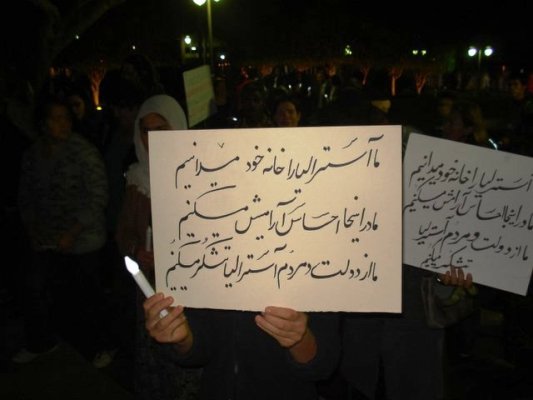 ما آسترالیا را خانه خود میدانیم
ما در اینجا احساس آرامش میکنیم
ما از دولت و مردم آسترالیا تشکر میکنیم
آسترالیا را خانه خود میدانیم
ما در اینجا احساس آرامش میکنیم
ما از دولت و مردم آسترالیا
تشکر میکنیم